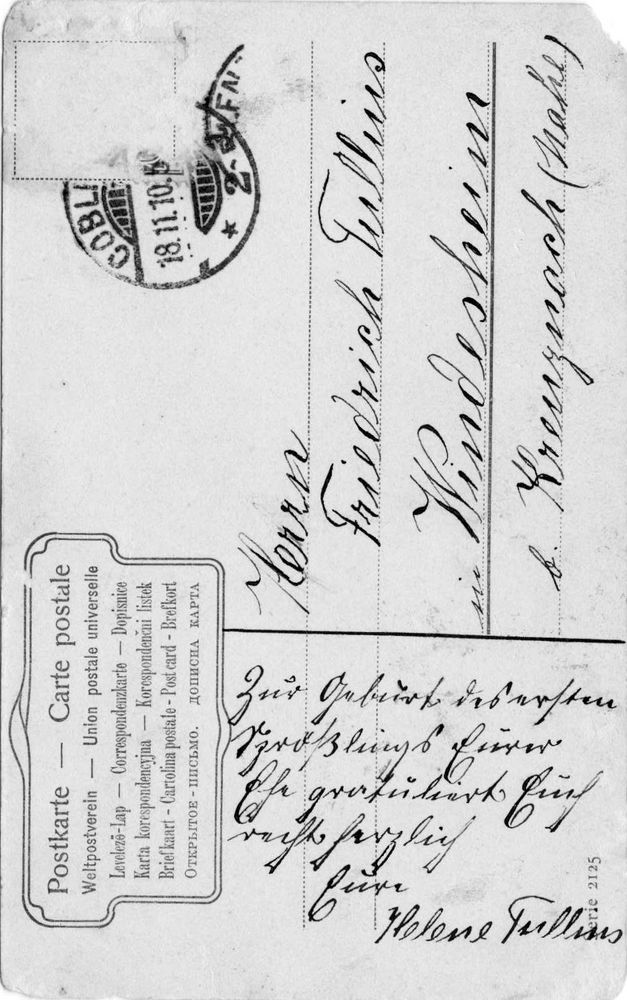 Postkarte — Carte postale
Weltpostverein — Union postale universelle
Levelező-Lap — Correspondenzkarte — Dopisnice
Karta korespondencyjna — Korespondenční listek
Briefkaart - Cartolina postale - Post card - Brefkort
Открытое - письмо. дописна карта
COBL
18.11.10.
2-
Herrn
Friedrich Tullius
in Windesheim
b. Kreuznach (Nahe)
Zur Geburt des ersten
Sprößlings Eurer
Ehe gratuliert Euch
recht herzlich
Eure
Helene Tullius
erie 2125